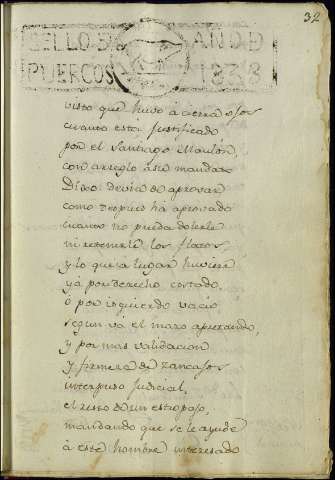 32
SELLO D AÑO D
PUERCOS 1833
visto que huvo à cierra ojos
cuanto está justificado
por el Santiago Maulon,
con arreglo á su mandato
Digo: devia de aprovar
como despues há aprovado
cuanto no pueda
ni los flatos
y lo que á lugar huviere
yá por derecho costado,
ó por izquierdo vacio
segun vá el mazo apretando,
y por mas validacion
y firmeza de zancajos
interpuso judicial,
el resto de un estropajo,
mandando que se le ayude
à este hombre interesado